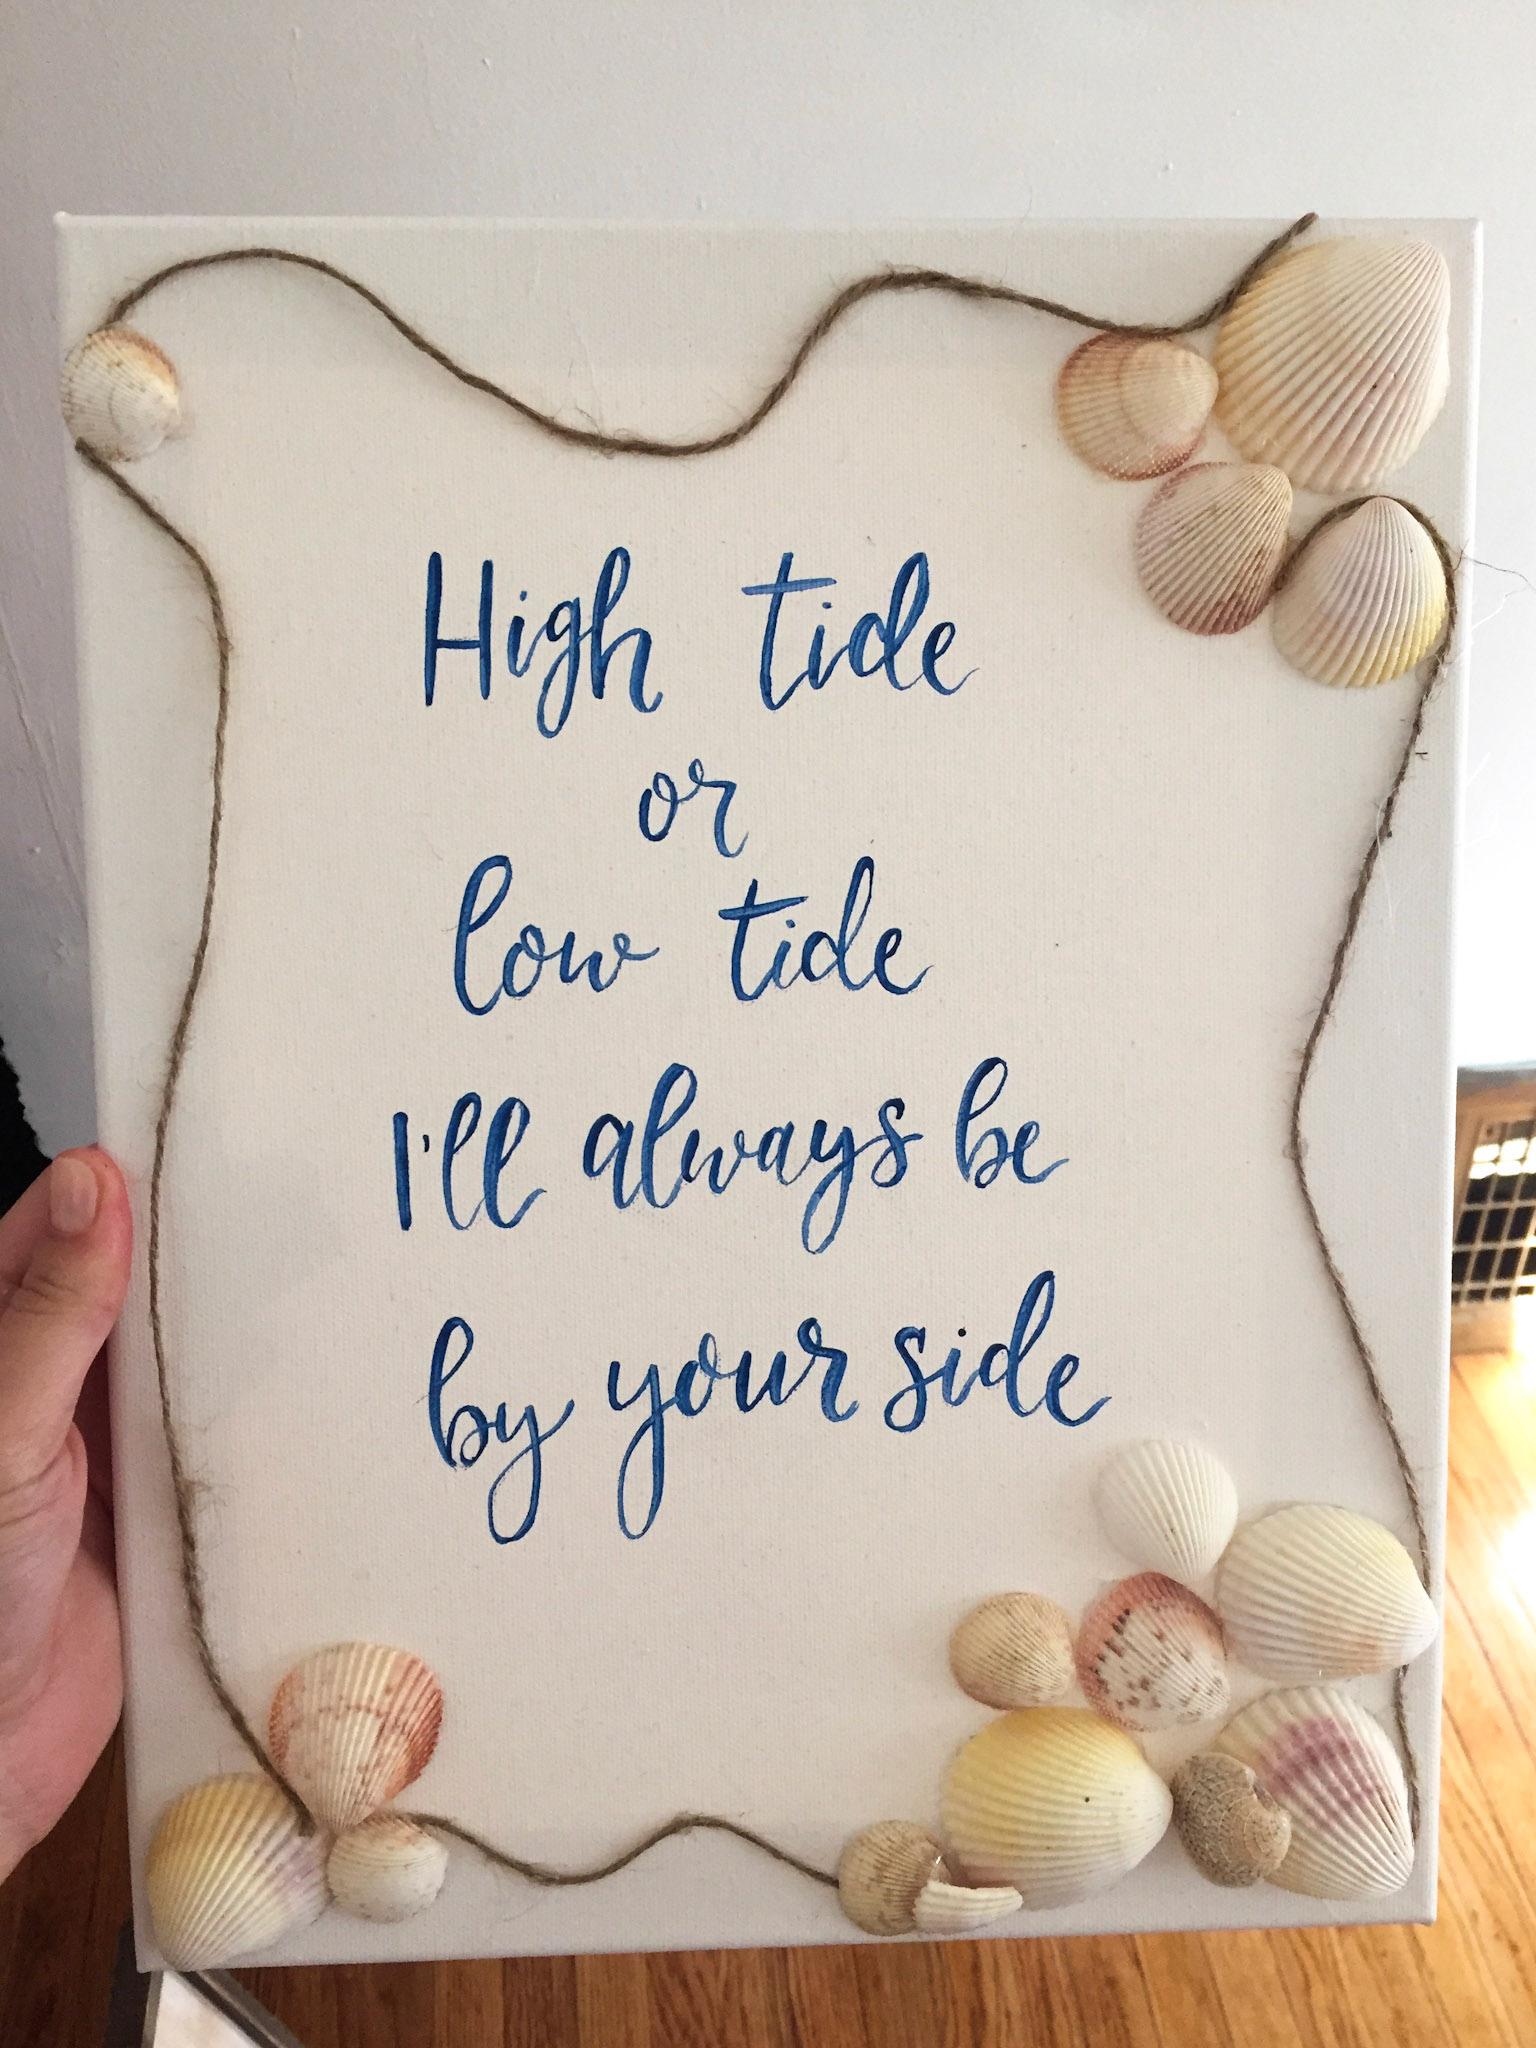 High tide
or
low tide
I'll always be
by your side